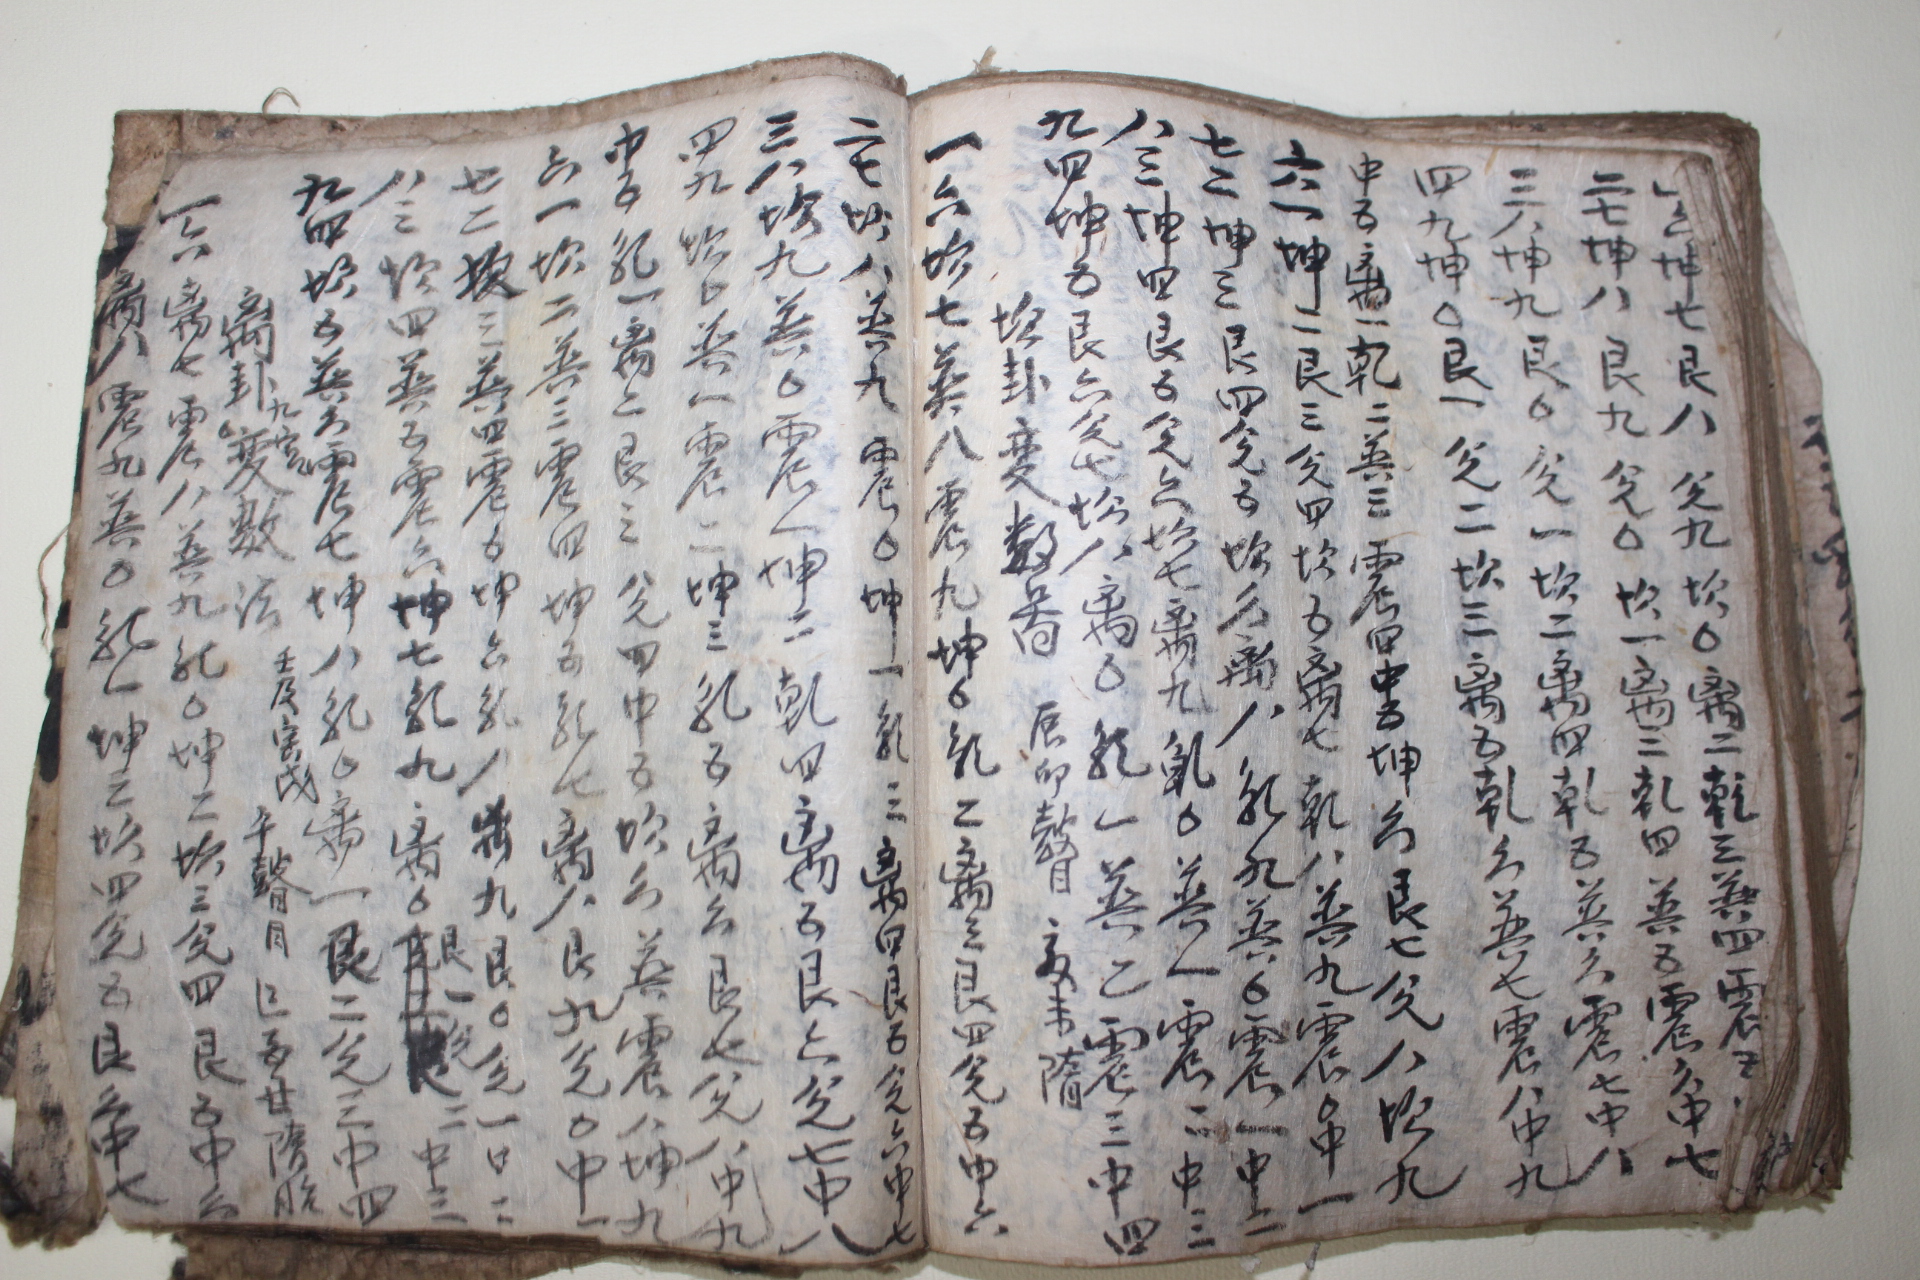 一六坤七艮八兌九坎○离二乾三巽四震五
二七坤八艮九兌○坎一离三乾四巽五震六中七
三八坤九艮○兌一坎二离四乾五巽六震七中八
四九坤○艮一兌二坎三离五乾六巽七震八中九
中五离一乾二巽三震四中五坤六艮七兌八坎九
六一坤二艮三兌四坎五离七乾八巽九震○中一
七二坤三艮四兌五坎六离八乾九巽○震一中二
八三坤四艮五兌六坎七离九乾○巽一震二中三
九四坤五艮六兌七坎八离○乾一巽二震三中四
坎卦変数 辰卯瞽目 亥未
一六坎七巽八震九坤○乾二离三艮四兌五中六
二七坎八巽九震○坤一乾三离四艮五兌六中七
三八坎九巽○震一坤二乾四离五艮六兌七中八
四九坎○巽一震二坤三乾五离六艮七兌八中九
中五乾一离二艮三兌四中五坎六巽震八坤九
六一坎二巽三震四坤五乾七离八艮九兌○中一
七二坎三巽四震五坤六乾八离九艮○兌一中二
八三坎四巽五震六坤七乾九离○艮一兌二中三
九四坎五巽六震七坤八乾○离一艮二兌三中四
离卦九宮変数法 壬及寅戌 午瞽目
一六离七震八巽九乾○坤二坎三兌四艮五中六
离八震九巽○乾一坤三坎四兌五艮六中七